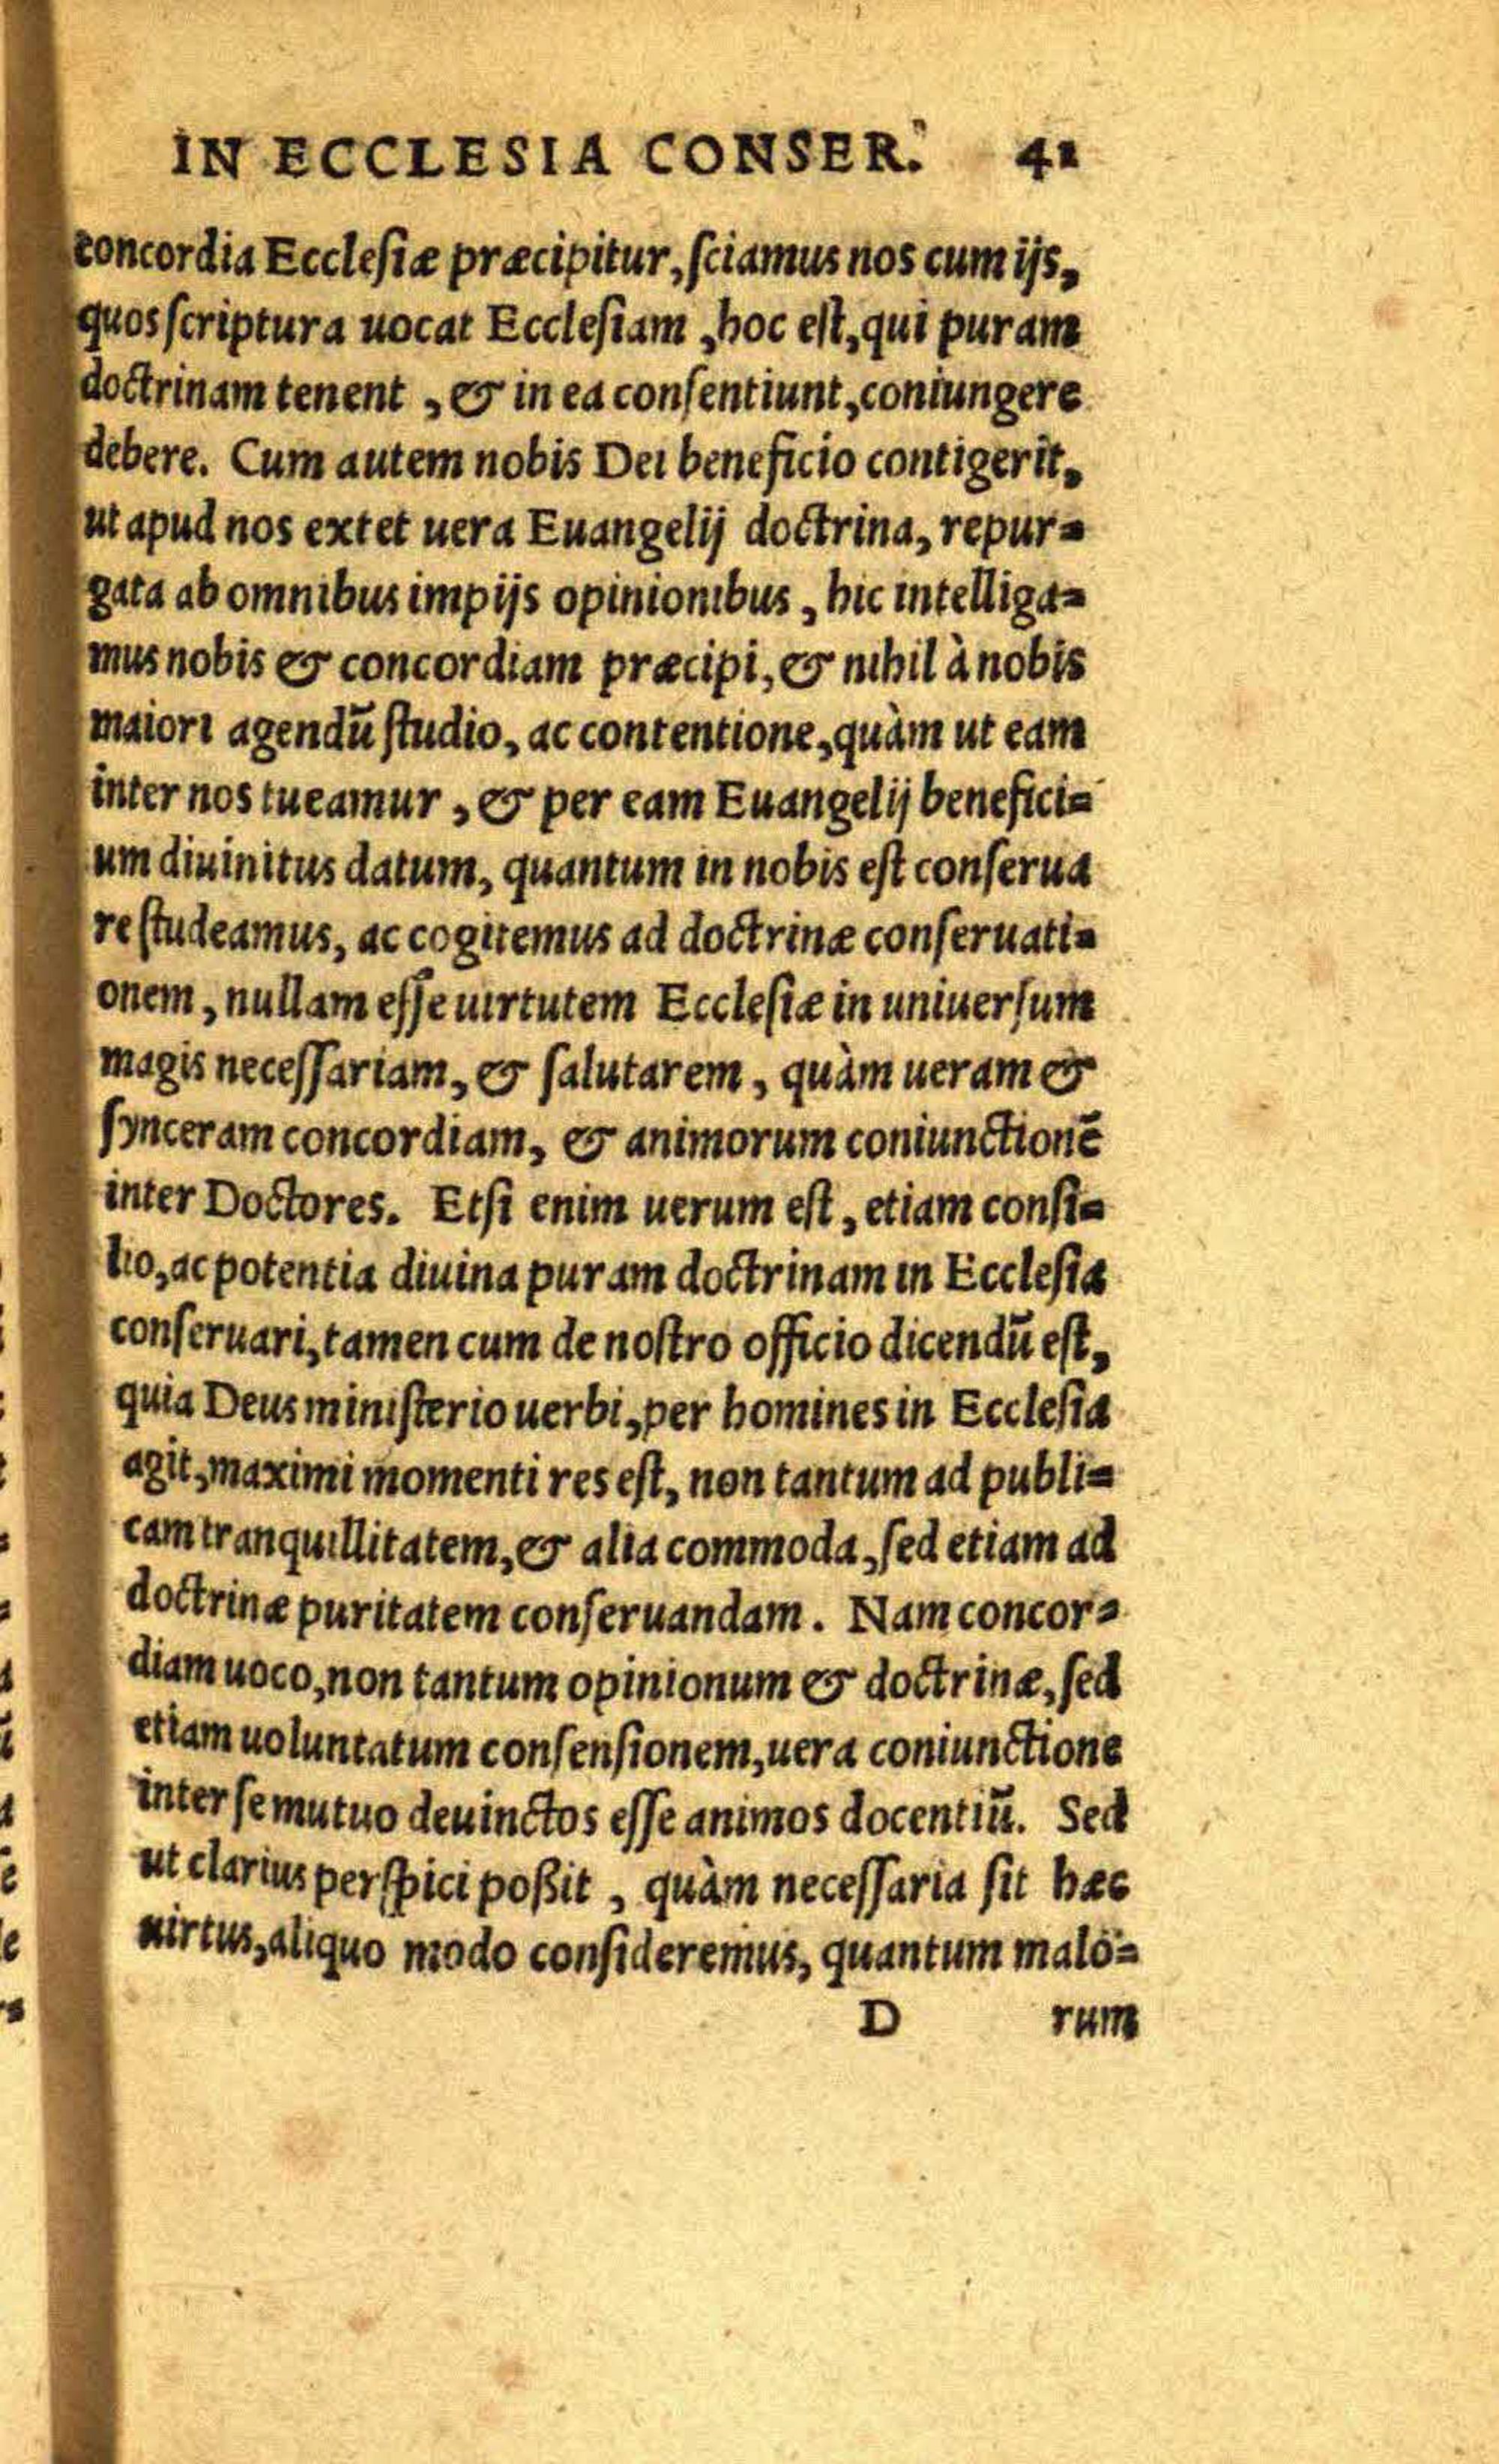 IN ECCLESIA CONSER. 41
concordia Ecclesiæ præcipitur, sciamus nos cum ijs,
quos scriptura uocat Ecclesiam, hoc est, qui puram
doctrinam tenent, & in ea consentiunt, coniungere
debere. Cum autem nobis Dei beneficio contigerit,
ut apud nos extet uera Euangelij doctrina, repur=
gata ab omnibus impijs opinionibus, hic intelliga=
mus nobis & concordiam præcipi, & nihil à nobis
maiori agendū studio, ac contentione, quàm ut eam
inter nos tueamur, & per eam Euangelij benefici=
um diuinitus datum, quantum in nobis est conserua
re studeamus, ac cogitemus ad doctrinæ conseruati=
onem, nullam esse uirtutem Ecclesiæ in uniuersum
magis necessariam, & salutarem, quàm ueram &
synceram concordiam, & animorum coniunctionē
inter Doctores. Etsi enim uerum est, etiam consi=
lio, ac potentia diuina puram doctrinam in Ecclesia
conseruari, tamen cum de nostro officio dicendū est,
quia Deus ministerio uerbi, per homines in Ecclesia
agit, maximi momenti res est, non tantum ad publi=
cam tranquillitatem, & alia commoda, sed etiam ad
doctrinæ puritatem conseruandam. Nam concor=
diam uoco, non tantum opinionum & doctrinæ, sed
etiam uoluntatum consensionem, uera coniunctione
inter se mutuo deuinctos esse animos docentiū. Sed
ut clarius perspici poßit, quàm necessaria sit hæc
uirtus, aliquo modo consideremus, quantum malo=
D rum